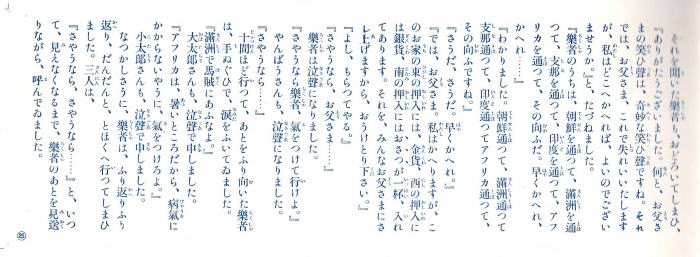 それを聞いた樂者も、おどろいてしまひ、
『ありがたうございました。何と、お父さ
まの笑ひ聲は、奇妙な笑ひ聲ですね。それ
では、お父さま、これで失れいいたします
が、私はどこへかへれば、よいのでござい
ませうか。』と、たづねました。
『樂者のうちは、朝鮮を通つて、滿洲を通
つて、支那を通つて、印度を通つて、アフ
リカを通つて、その向ふだ。早くかへれ、
かへれ……』
『わかりました。朝鮮通つて、滿洲通つて
支那通つて、印度通つてアフリカ通つて、
その向ふですね。』
『さうだ、さうだ。早くかへれ。』
『では、お父さま。私はかへりますが、こ
のお家の東の押入には、金貨、西の押入に
は銀貨、南の押入にはおさつが一杯、入れ
てあります。それを、みんなお父さまにさ
し上げますから、おうけとり下さい。』
『よし、もらつてやる。』
『さやうなら、お父さま……』
樂者は泣聲になりました。
『さやうなら樂者、氣をつけて行けよ。』
やんばうさんも、泣聲になりました。
『さやうなら……』
十間ほど行つて、あとをふり向いた樂者
は、手ぬぐひで、涙をおいてゐました。
『滿洲で馬賊にあふなよ。』
大太郎さんも、泣聲で申しました。
『アフリカは、暑いところだから、病氣に
かからないやうに、氣をつけろよ。』
小太郎さんも、泣聲で申しました。
なつかしさうに、樂者は、ふり返りふり
返り、だんだんと、とほくへ行つてしまひ
ました。三人は、
『さやうなら、さやうなら……』と、いつ
て、見えなくなるまで、樂者のあとを見送
りながら、呼んでゐました。
㉕